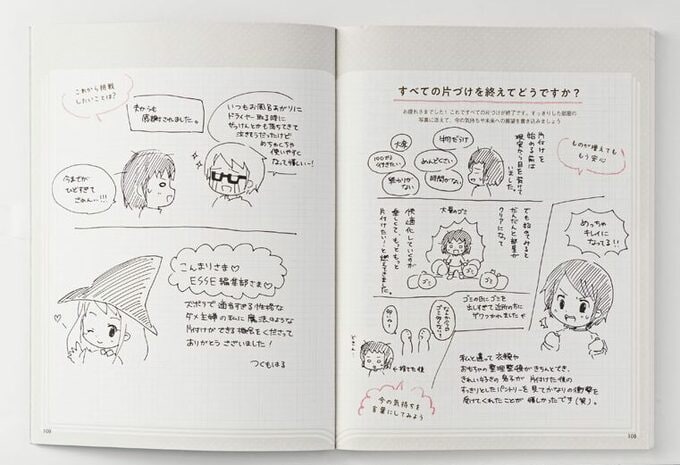 すべての片づけを終えてどうですか？
お疲れさまでした！これですべての片づけが終了です。すっきりした部屋の
写真に添えて、今の気持ちや未来への展望を書き込みましょう
片付けを
始める前は
現実から目を背けて
いました。
大変
仕切りたい
めんどくさい
時間がない
ものが増えても
もう安心
でも始めてみると
だんだんと部屋が
クリアになって
大量のゴミ
快適化していくのが
楽しくて、もっともっと
片付けたい！と燃えてきました。
ゴミ
ゴミ
めっちゃ
キレイに
なってる！！
ゴミの日にゴミを
出しすぎて近所の方に
ザワつかれました
捨てた僕
今の気持ちを
言葉にしてみよう
私と違って衣類や
おもちゃの整理整頓がきちんとでき、
きれい好きな息子が片付けた後の
すっきりとしたパントリーを見てかなりの衝撃を
受けてくれたことが嬉しかったです（笑）。
これから挑戦
したいことは？
夫からも
感謝されました
いつもお風呂あがりに
ドライヤー取る時に
せっけんとかも落ちてきて
泣きそうだったけど
めちゃくちゃ
使いやすく
なって嬉しいー！
今までが
ひどすぎて
さーせん…!!!
こんまりさま♡
ESSE編集部さま♡
ズボラで適当すぎる性格な
ダメ主婦の私に魔法のような
片付けができる機会をくださって
ありがとうございました！
つくもはる
108